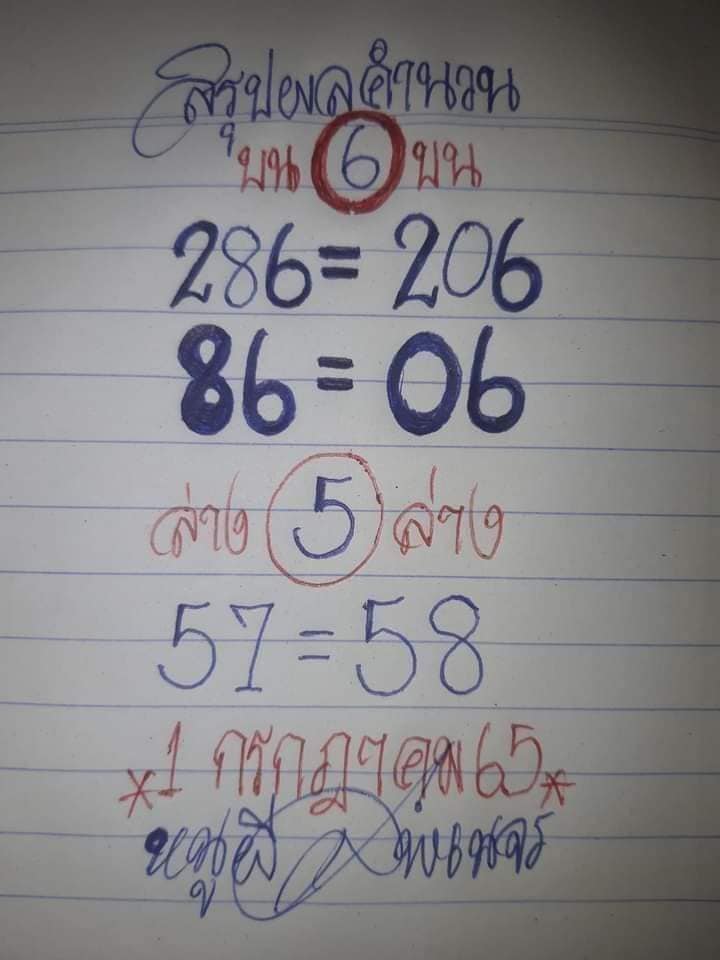 สรุปผลคำนวน
บน 6 บน
286 = 206
86 = 06
ล่าง 5 ล่าง
57 = 58
*1 กรกฎาคม 65*
หนูผี พเนจร